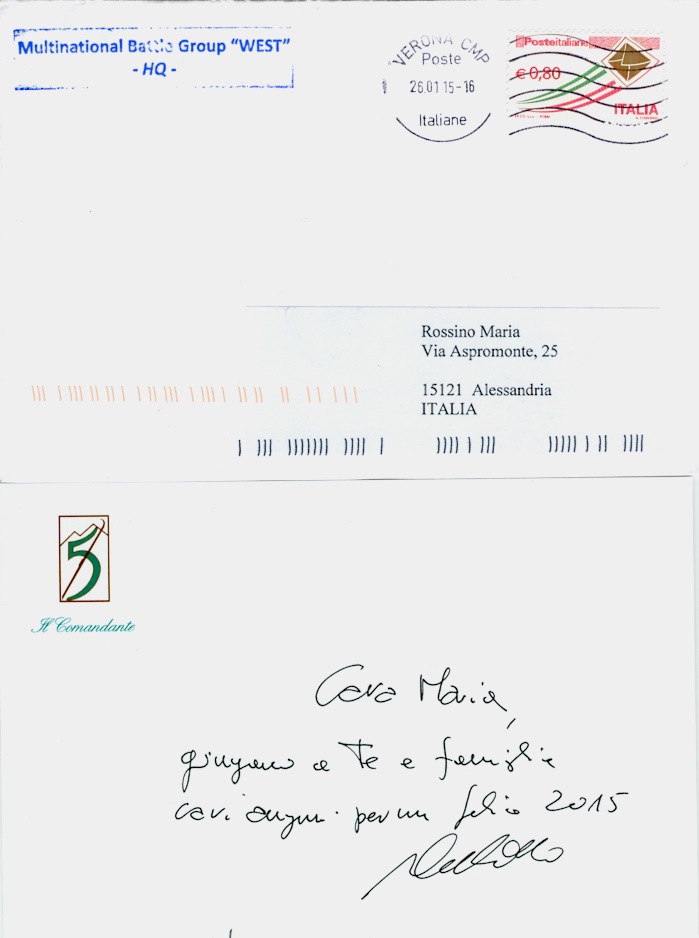 Multinational Battle Group "WEST"
- HQ -
VERONA CMP
Poste
26.01 15-16
Italiane
Posteitaliane
€ 0,80
ITALIA
Rossino Maria
Via Aspromonte, 25
15121 Alessandria
ITALIA
5
Il Comandante
Cara Maria,
giungano a Te e famiglia
cari auguri per un felice 2015